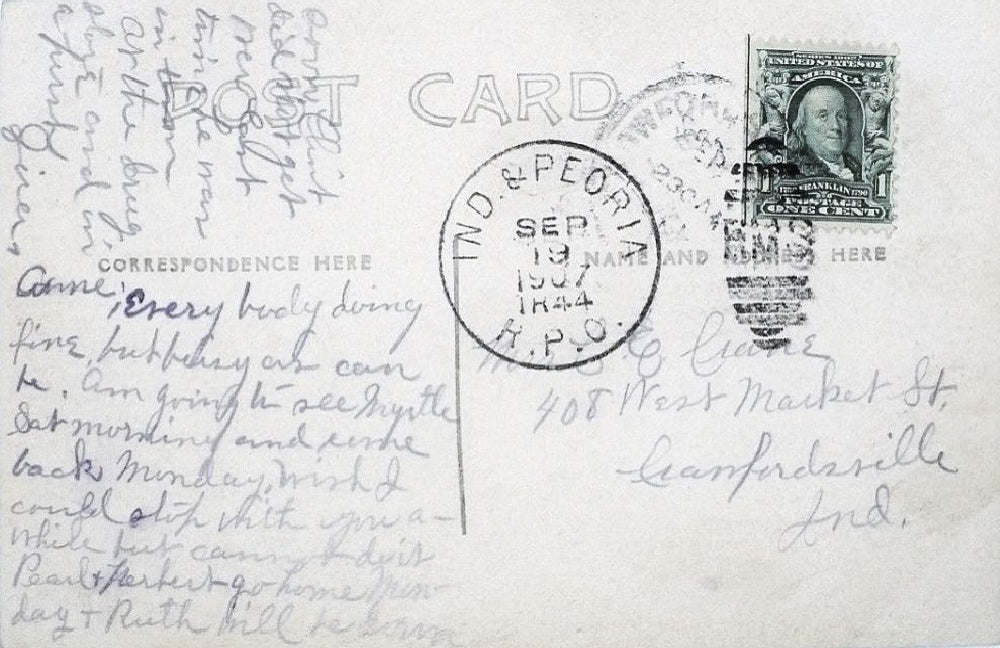 POST CARD
CORRESPONDENCE HERE
NAME AND ADDRESS HERE
SERIES 1902
UNITED STATES OF
AMERICA
1 FRANKLIN 1
POSTAGE
ONE CENT
IND. & PEORIA
SEP
19
1907
TR44
R.P.O.
C Crane
408 West Market St.
Crawfordsville
Ind.
Every body doing
fine, but busy as can
be. Am going to see Myrtle
Sat morning and come
back Monday. Wish I
could stop with you a-
while but cannot do it
Pearl + Herbert go home Mon-
day + Ruth will be
Sorry that
did not get
next
time he was
in town
At the drug
store and in
a